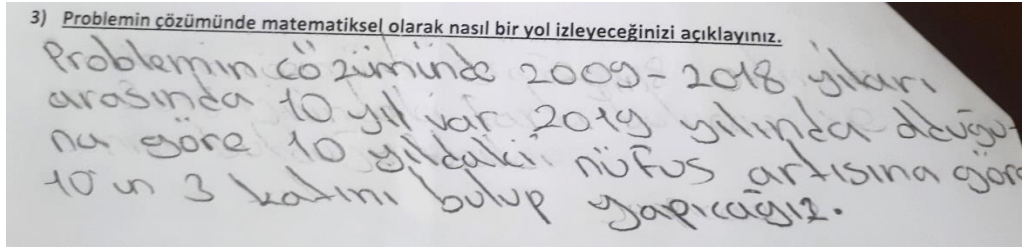 3) Problemin çözümünde matematiksel olarak nasıl bir yol izleyeceğinizi açıklayınız.
Problemin çözümünde 2009-2018 yıları
arasında 10 yıl var 2019 yılında olduğu-
na göre 10 yıldaki nüfus artısına göre
10 un 3 katını bulup yapıcağız.